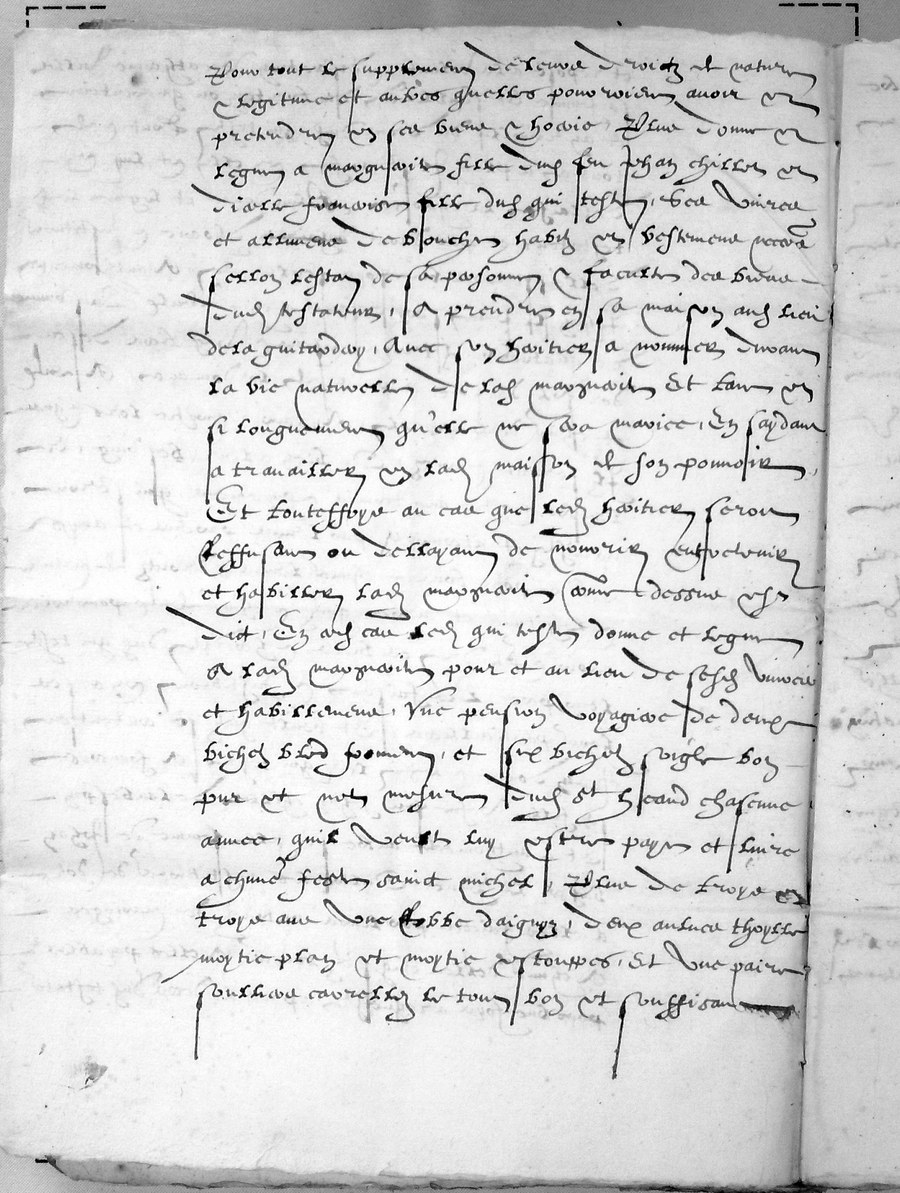 Pour tout le supplement de leurs droictz de nature
& legitime et aultres qu'elles pourroient avoir et
pretendre en ses biens & hoirie. Plus donne et
legue a marguerite fille dud feu Jehan chillet et
dicelle francoise fille dud qui teste, Ses vivres
et alimens de bouche habitz et vestemens neccres
sellon lestat de sa personne & faculte des biens
dud testateur, A prendre en sa maison aud lieu
de la guitardery, Avec son heritier a nommer durant
la vie naturelle de lad marguerite Et tant et
si longuement qu'elle ne sera mariee, En saydant
a travailler en lad maison de son pouvoir,
Et touteffoys au cas que led heritier seroit
reffusant ou dellayant de nourrir entretenir
et habiller lad marguerite comme dessus est
dict, En ced cas led qui teste donne et legue
A lad marguerite pour et au lieu de sesd vivres
et habillemens, Une pension viagiere de deux
bichetz bled froment, et six bichetz soigle bon
pur et net mesure dud St h eand chascune
annee, quil veult luy estre paye et livre
a chune feste sainct michel, Plus de troys en
troys ans une robbe daigneaulx, deux aulnes thoylle
moytie plan et moytie estouppes, Et une paire
soulliers carrellez le tout bon et souffisant